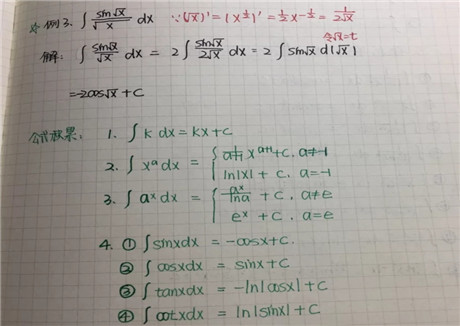 ☆ 例3. ∫ sin√x/√x dx ∵(√x)' = (x^(1/2))' = 1/2 x^(-1/2) = 1/(2√x)
令√x=t
解: ∫ sin√x/√x dx = 2∫ sin√x/(2√x) dx = 2∫ sin√x d(√x)
=-2cos√x+C
公式效果: 1. ∫ k dx = kx+C
2. ∫ x^a dx = { 1/(a+1) x^(a+1)+C, a≠-1
ln|x| + C, a=-1
3. ∫ a^x dx = { a^x/lna + C, a≠e
e^x + C, a=e
4. ① ∫ sinxdx = -cosx+C.
② ∫ cosxdx = sinx+C
③ ∫ tanxdx = -ln|cosx|+C
④ ∫ cotxdx = ln|sinx|+C